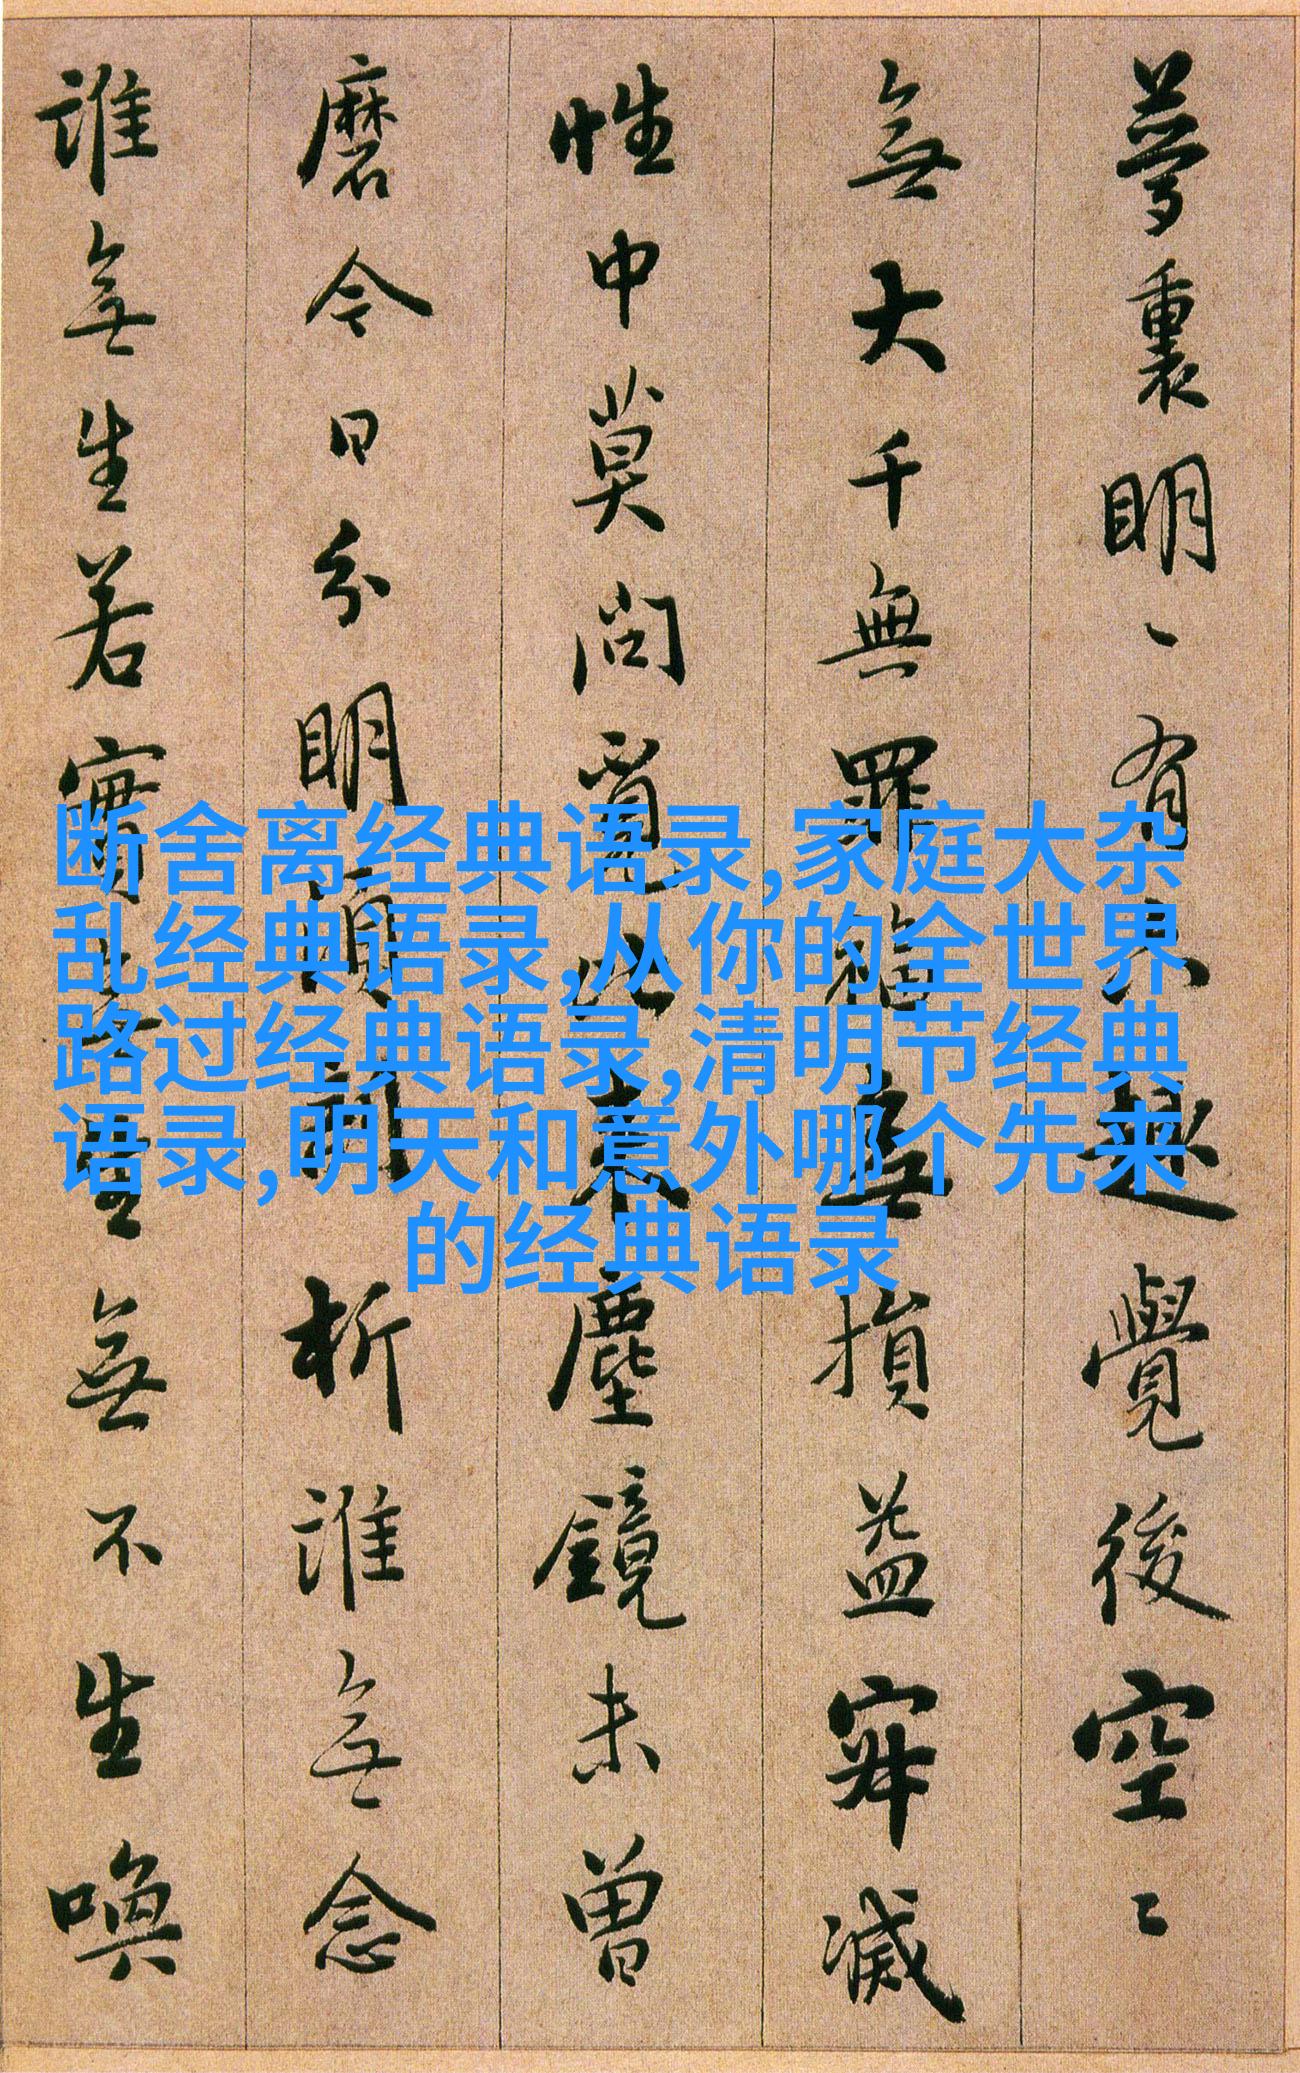 夢裏明々有六趣覺後空々
無大千無罪福無損益寂滅
性中莫問覓比來塵鏡未曾
磨今日分明須剖析誰無念
誰無生若實無生無不生喚
断舍离经典语录,家庭大杂
乱经典语录,从你的全世界
路过经典语录,清明节经典
语录,明天和意外哪个先来
的经典语录